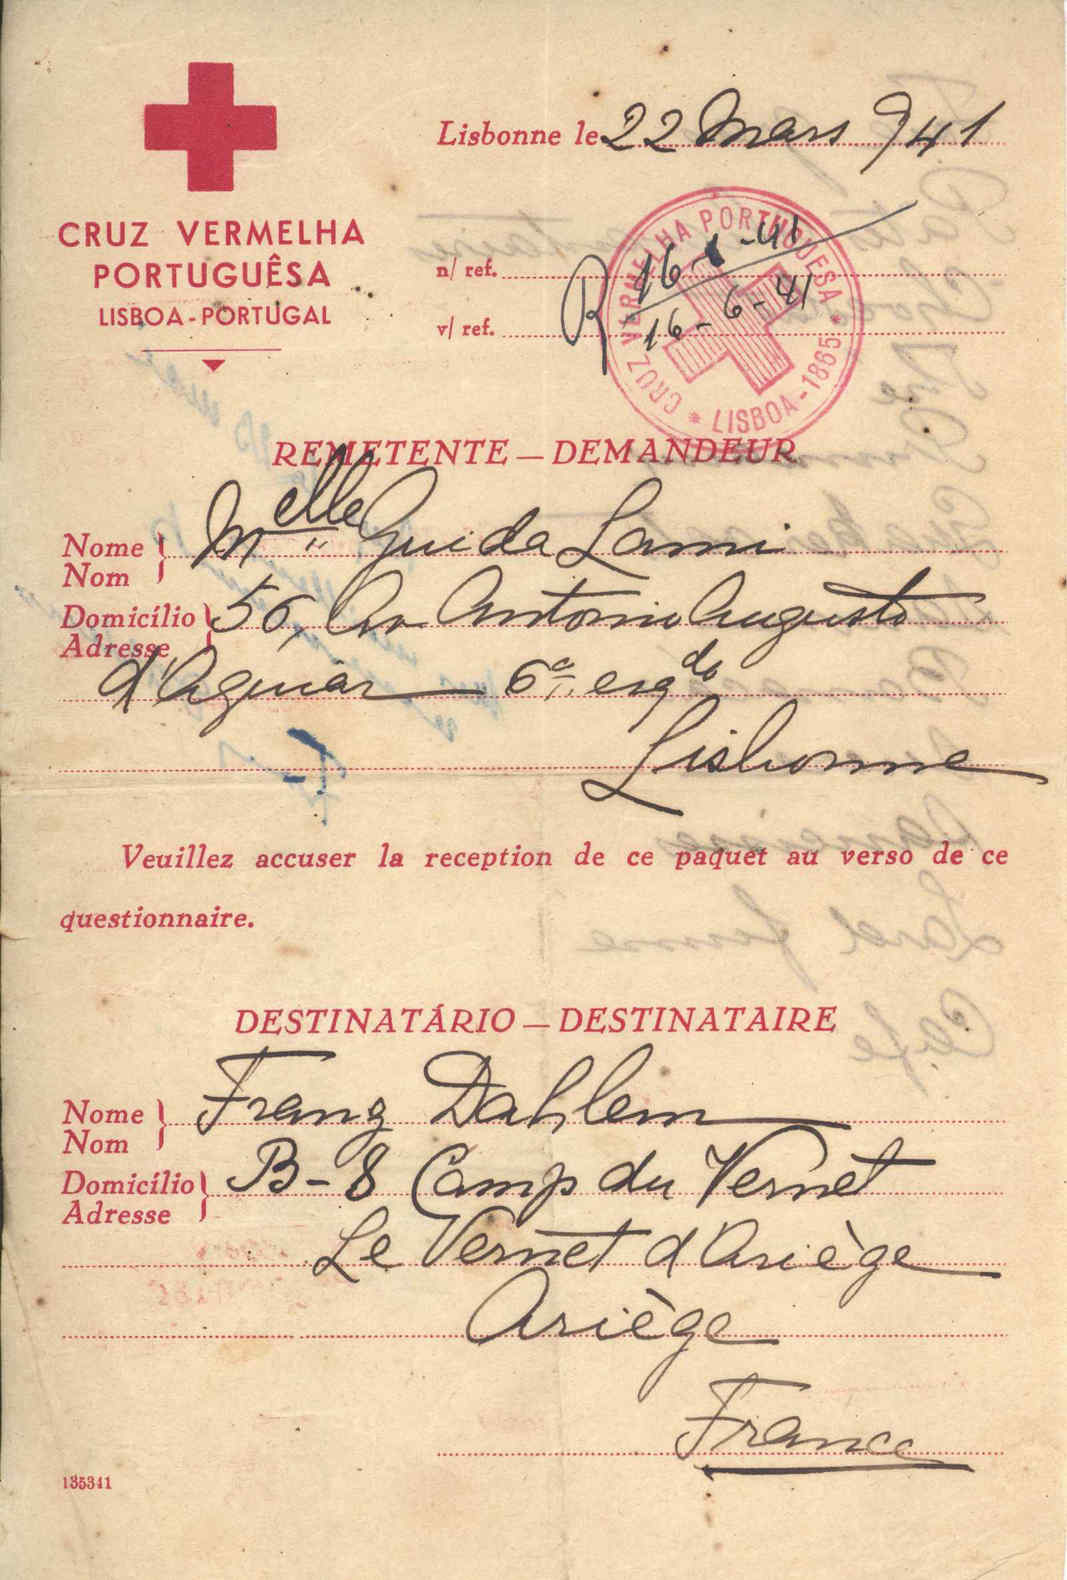 Lisbonne le 22 Mars 941
CRUZ VERMELHA
PORTUGUÊSA
LISBOA - PORTUGAL
n/ ref.
v/ ref.
R 16-1-41
16-6-41
CRUZ VERMELHA PORTUGUESA * LISBOA - 1865 *
REMETENTE — DEMANDEUR
Nome
Nom
Melle Guida Lami
Domicílio
Adresse
56, Av Antonio Augusto
d'Aguiar — 6º esqdo
Lisbonne
Veuillez accuser la reception de ce paquet au verso de ce
questionnaire.
DESTINATÁRIO — DESTINATAIRE
Nome
Nom
Franz Dahlem
Domicílio
Adresse
B-8 Camp du Vernet
Le Vernet d'Ariège
Ariège
France
135341